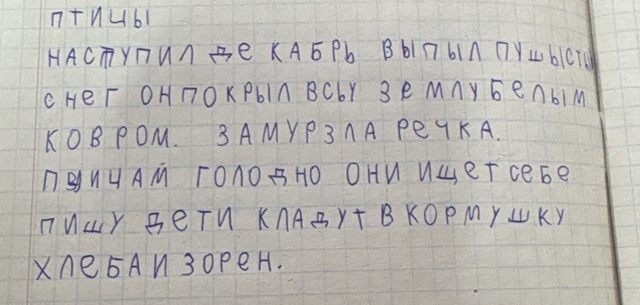 ПТИЦЫ
НАСТУПИЛ ДЕ КАБРЬ ВЫПЫЛ ПУШЫСТЫ
СНЕГ ОН ПОКРЫЛ ВСЬУ ЗЕМЛУ БЕЛЫМ
КОВРОМ. ЗАМУРЗЛА РЕЧКА.
ПЩИЧАЙ ГОЛОДНО ОНИ ИЩЕТ СЕБЕ
ПИЩУ ДЕТИ КЛАДУТ В КОРМУШКУ
ХЛЕБА И ЗОРЕН.